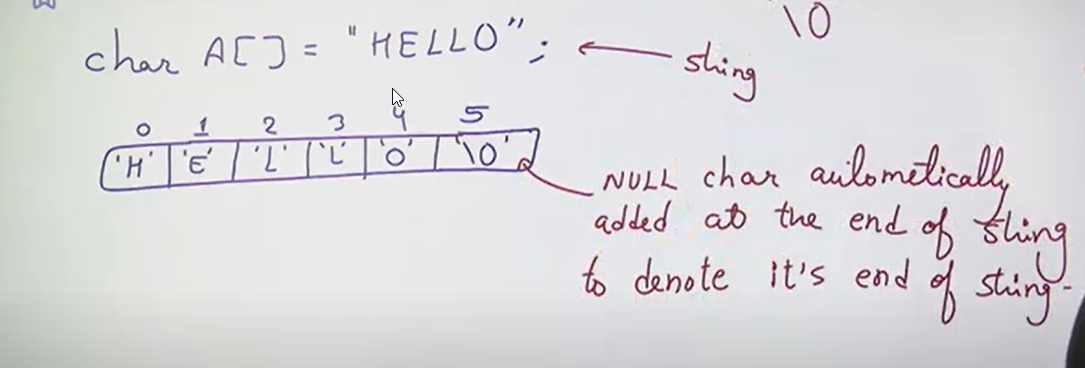 \0
char A[] = "HELLO"; ← string
0 1 2 3 4 5
'H' 'E' 'L' 'L' 'O' '\0'
NULL char automatically
added at the end of string
to denote it's end of string.